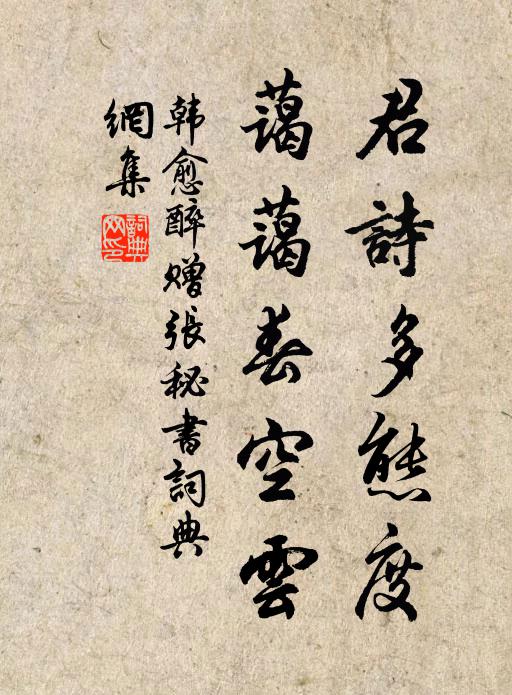 君詩多態度
藹藹春空雲
韩愈醉赠張秘書詞典
網集
詞典网印